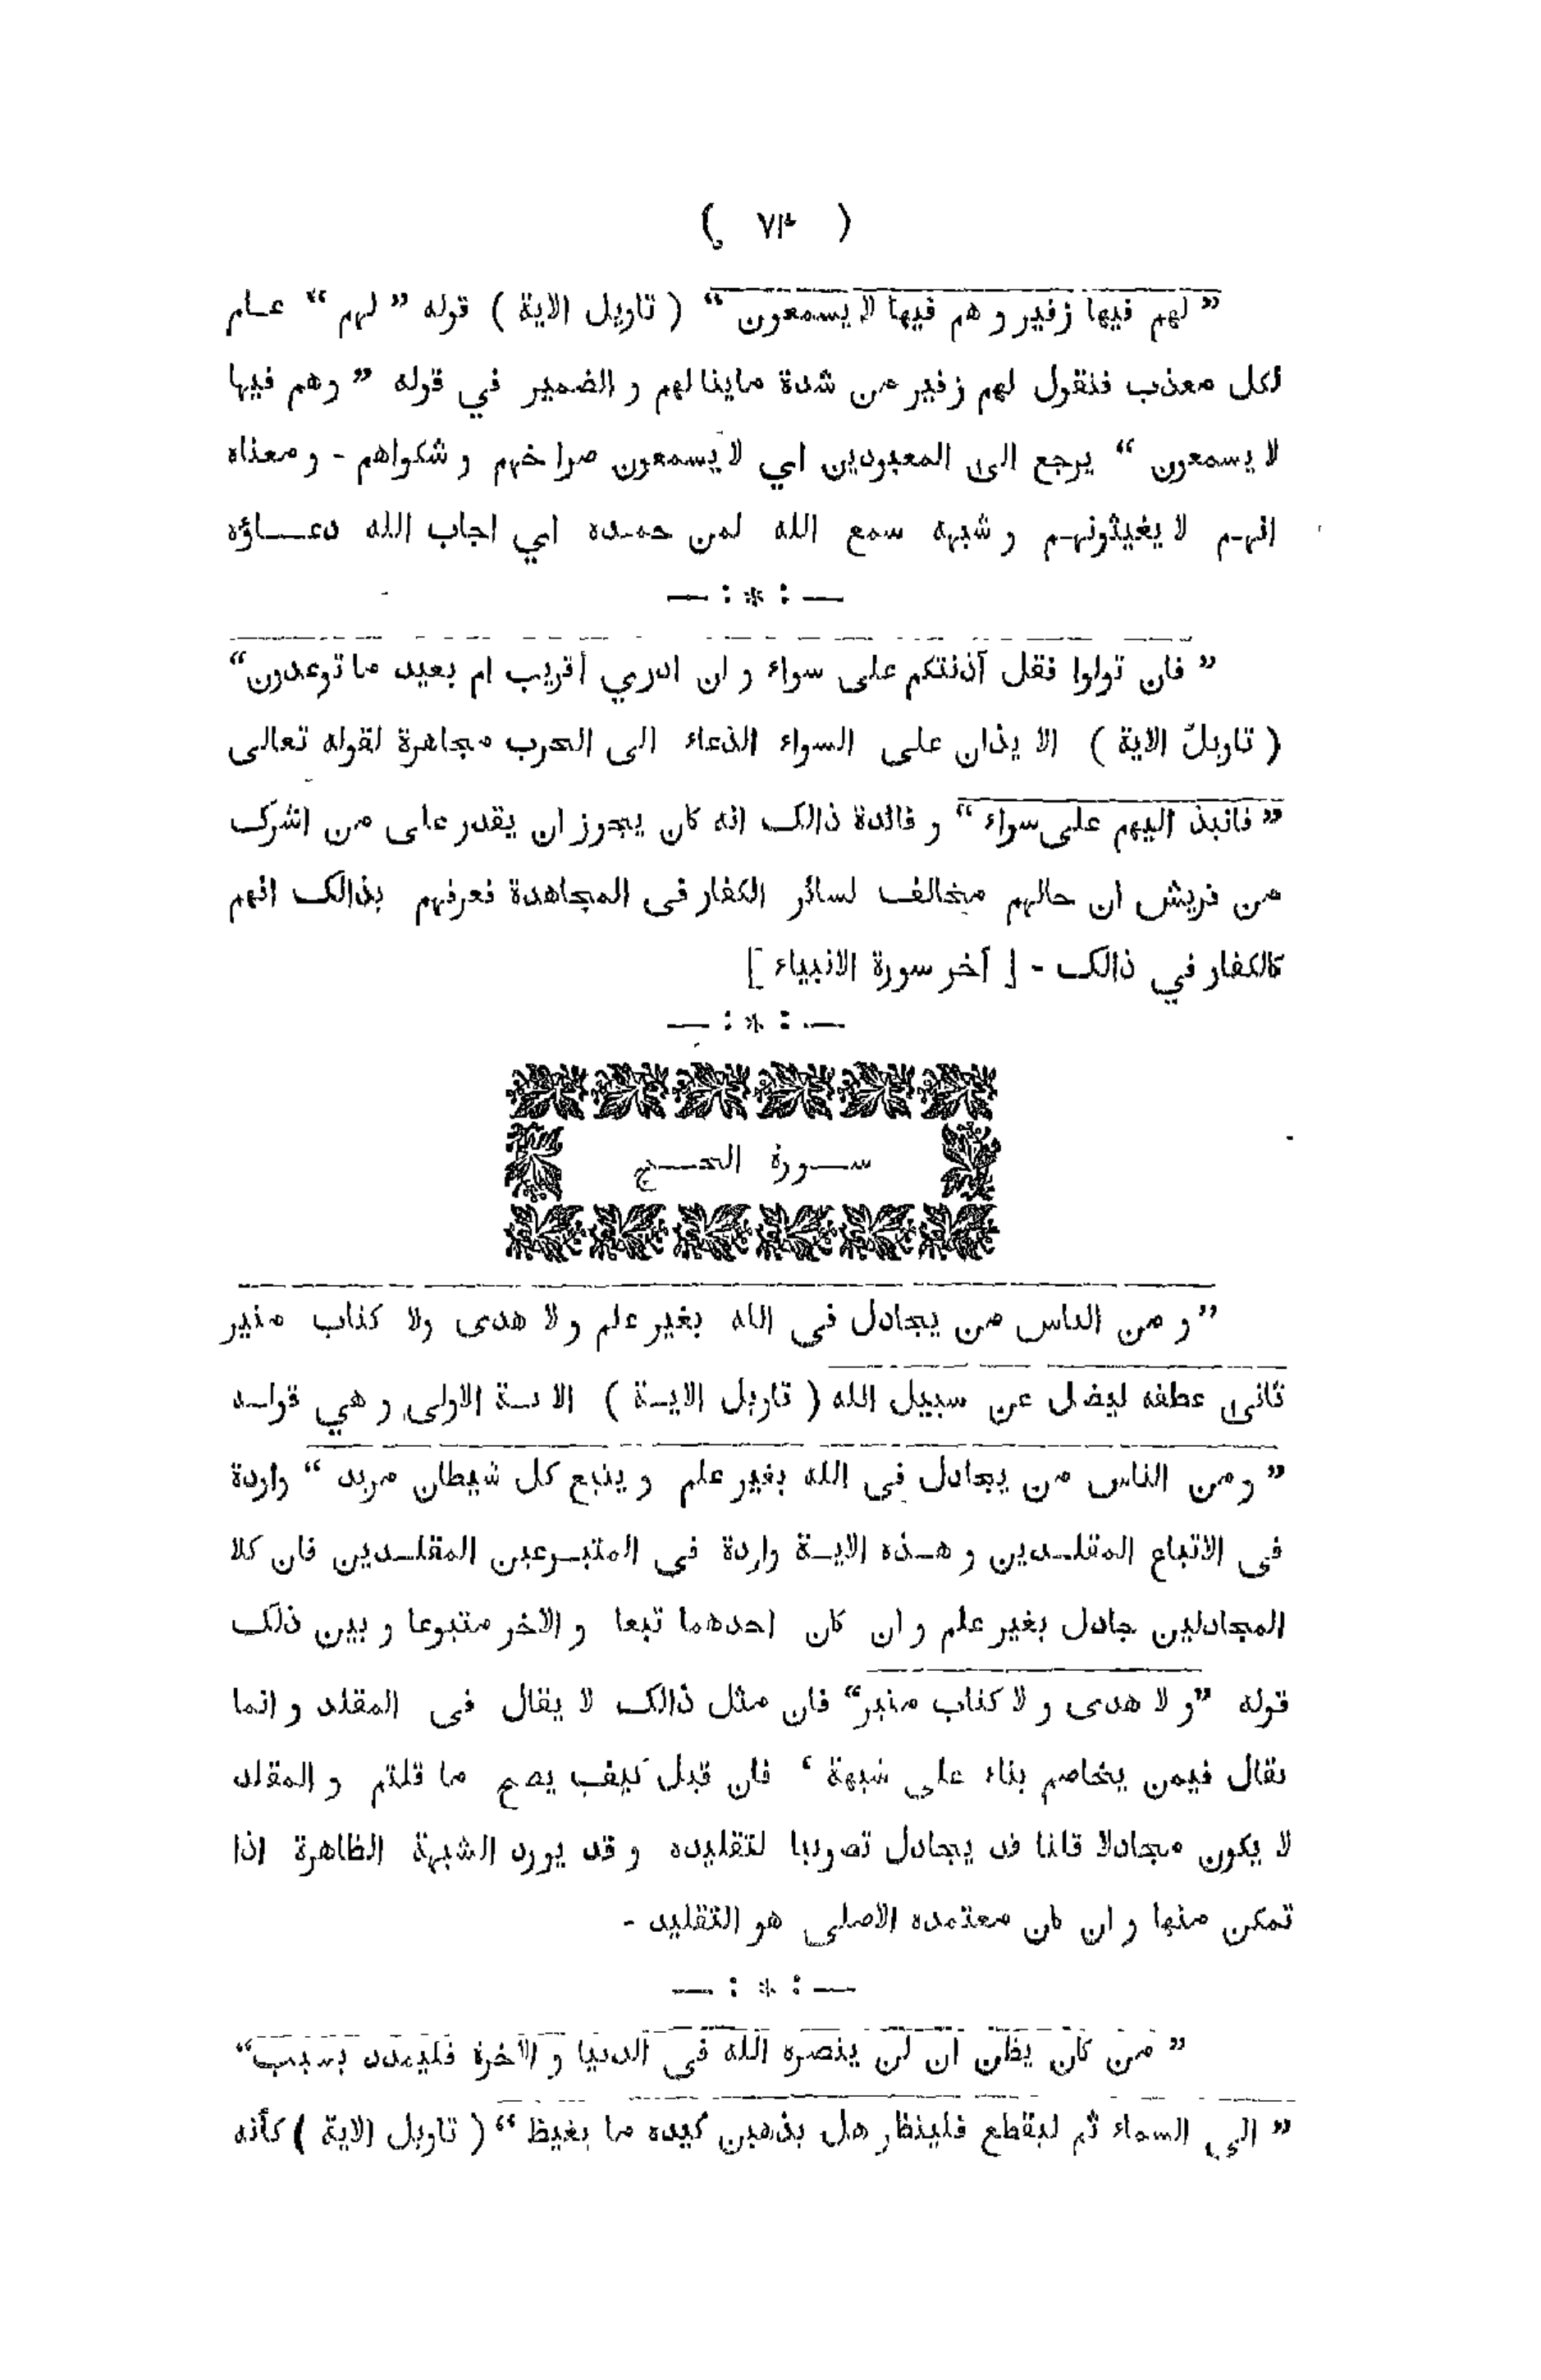 ( ٧٣ )
” لهم فيها زفير و هم فيها لا يسمعون “ ( تاويل الاية ) قوله ” لهم “ عـام
لكل معذب فنقول لهم زفير من شدة ماينالهم و الضمير في قوله ” وهم فيها
لا يسمعون “ يرجع الى المعبودين اي لا يسمعون صراخهم و شكواهم - و معناه
انهـم لا يغيثونهـم و شبهه سمع الله لمن حمـده اي اجاب الله دعـــاؤه
— : * : —
” فان تولوا فقل آذنتكم على سواء و ان ادري أقريب ام بعيد ما توعدون“
( تاويل الاية ) الا يذان على السواء الدعاء الى الحرب مجاهرة لقوله تعالى
” فانبذ اليهم على سواء “ و فائدة ذالك انه كان يجوز ان يقدر على من اشرك
من قريش ان حالهم مخالف لسائر الكفار فى المجاهدة فعرفهم بذالك انهم
كالكفار في ذالك - [ آخر سورة الانبياء ]
— : * : —
ســورة الحــج
”و من الناس من يجادل فى الله بغير علم و لا هدى ولا كتاب منير
ثانى عطفه ليضل عن سبيل الله ( تاويل الايـة ) الا يـة الاولى و هي قولـه
” ومن الناس من يجادل فى الله بغير علم و يتبع كل شيطان مريد “ واردة
فى الاتباع المقلـدين و هـذه الايـة واردة فى المتبـوعين المقلـدين فان كلا
المجادلين جادل بغير علم و ان كان احدهما تبعا و الآخر متبوعا و بين ذلك
قوله ”و لا هدى و لا كتاب منير“ فان مثل ذالك لا يقال فى المقلد و انما
يقال فيمن يخاصم بناء على شبهة ، فان قيل كيف يصح ما قلتم و المقلد
لا يكون مجادلا قلنا قد يجادل تصويبا لتقليده و قد يورد الشبهة الظاهرة اذا
تمكن منها و ان كان معتمده الاصلى هو التقليد -
— : * : —
” من كان يظن ان لن ينصره الله فى الدنيا و الآخرة فليمدد بسبب“
” الى السماء ثم ليقطع فلينظر هل يذهبن كيده ما يغيظ “ ( تاويل الاية ) كأنه